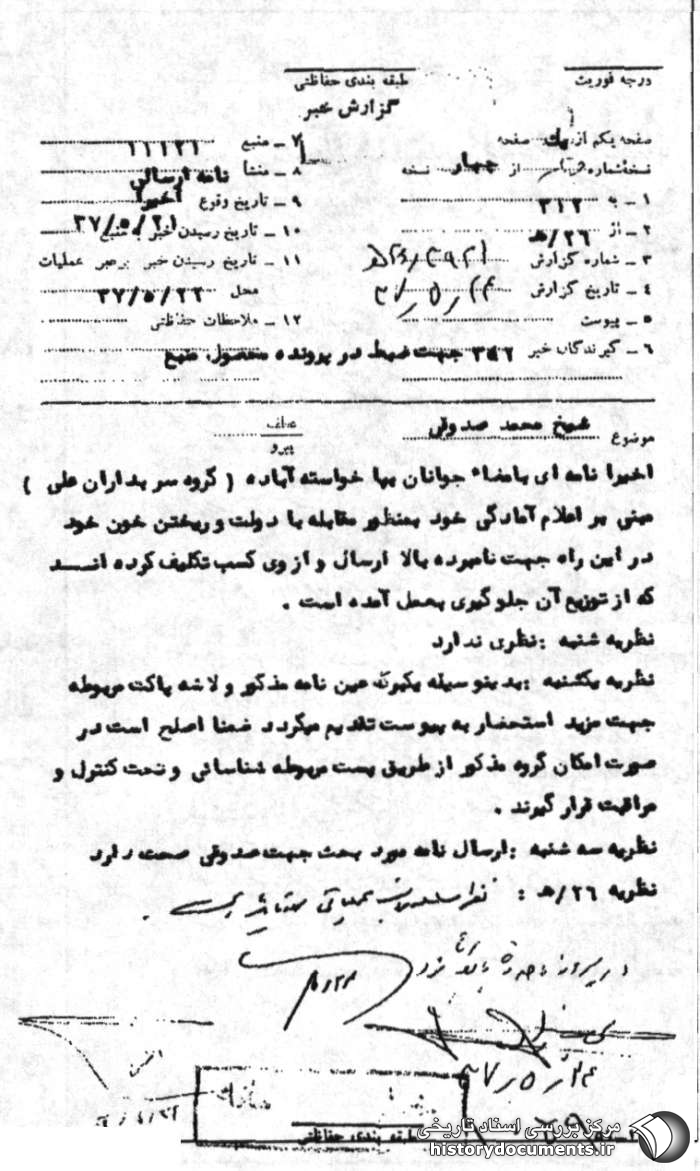 درجه فوریت
طبقه بندی حفاظتی
گزارش خبر
صفحه یکم از یک صفحه
نسخه شماره از چهار نسخه
۱ ـ به ۳۱۲
۲ ـ از ۲۶/هـ
۳ ـ شماره گزارش
۴ ـ تاریخ گزارش ۳۷/۵/۲۴
۵ ـ پیوست
۶ ـ گیرندگان خبر ۳۴۲ جهت ضبط در پرونده محصول منبع
۷ ـ منبع ۱۱۱۲۱
۸ ـ منشأ نامه ارسالی
۹ ـ تاریخ وقوع اخیرا
۱۰ ـ تاریخ رسیدن خبر به منبع ۳۷/۵/۲۱
۱۱ ـ تاریخ رسیدن خبر برهبر عملیات
محل ۳۷/۵/۲۲
۱۲ ـ ملاحظات حفاظتی
موضوع شیخ محمد صدوقی
عطف
پیرو
اخیرا نامه ای بامضاء جوانان بپا خواسته آباده ( گروه سربداران علی )
مبنی بر اعلام آمادگی خود بمنظور مقابله با دولت و ریختن خون خود
در این راه جهت نامبرده بالا ارسال و از وی کسب تکلیف کرده انـد
که از توزیع آن جلوگیری بعمل آمده است .
نظریه شنبه : نظری ندارد
نظریه یکشنبه : بدینوسیله یکبرگ عین نامه مذکور و لاشه پاکت مربوطه
جهت مزید استحضار به پیوست تقدیم میگردد ضمنا اصلح است در
صورت امکان گروه مذکور از طریق پست مربوطه شناسائی و تحت کنترل و
مراقبت قرار گیرند .
نظریه سه شنبه : ارسال نامه مورد بحث جهت صدوقی صحت دارد
نظریه ۲۶/هـ :
۳۷/۵/۲۴
طبقه بندی حفاظتی
مرکز بررسی اسناد تاریخی
historydocuments.ir